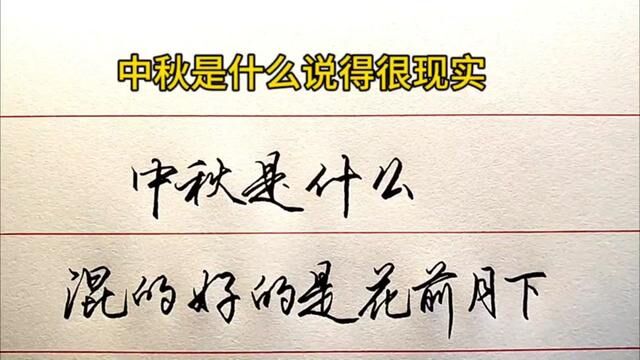 中秋是什么说得很现实
中秋是什么
混的好的是花前月下